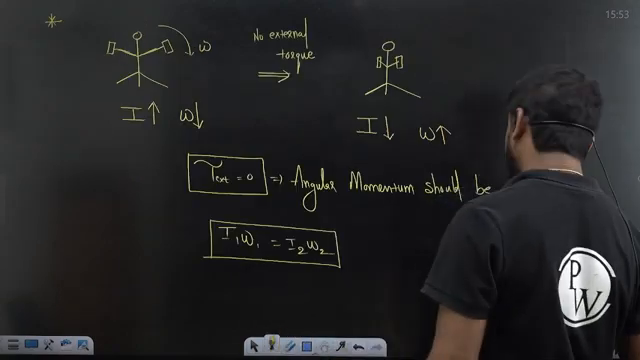 15:53
*
ω
No external
torque
⇒
I↑ ω↓
I↓ ω↑
τext = 0 ⇒ Angular Momentum should be
I₁ω₁ = I₂ω₂
PW